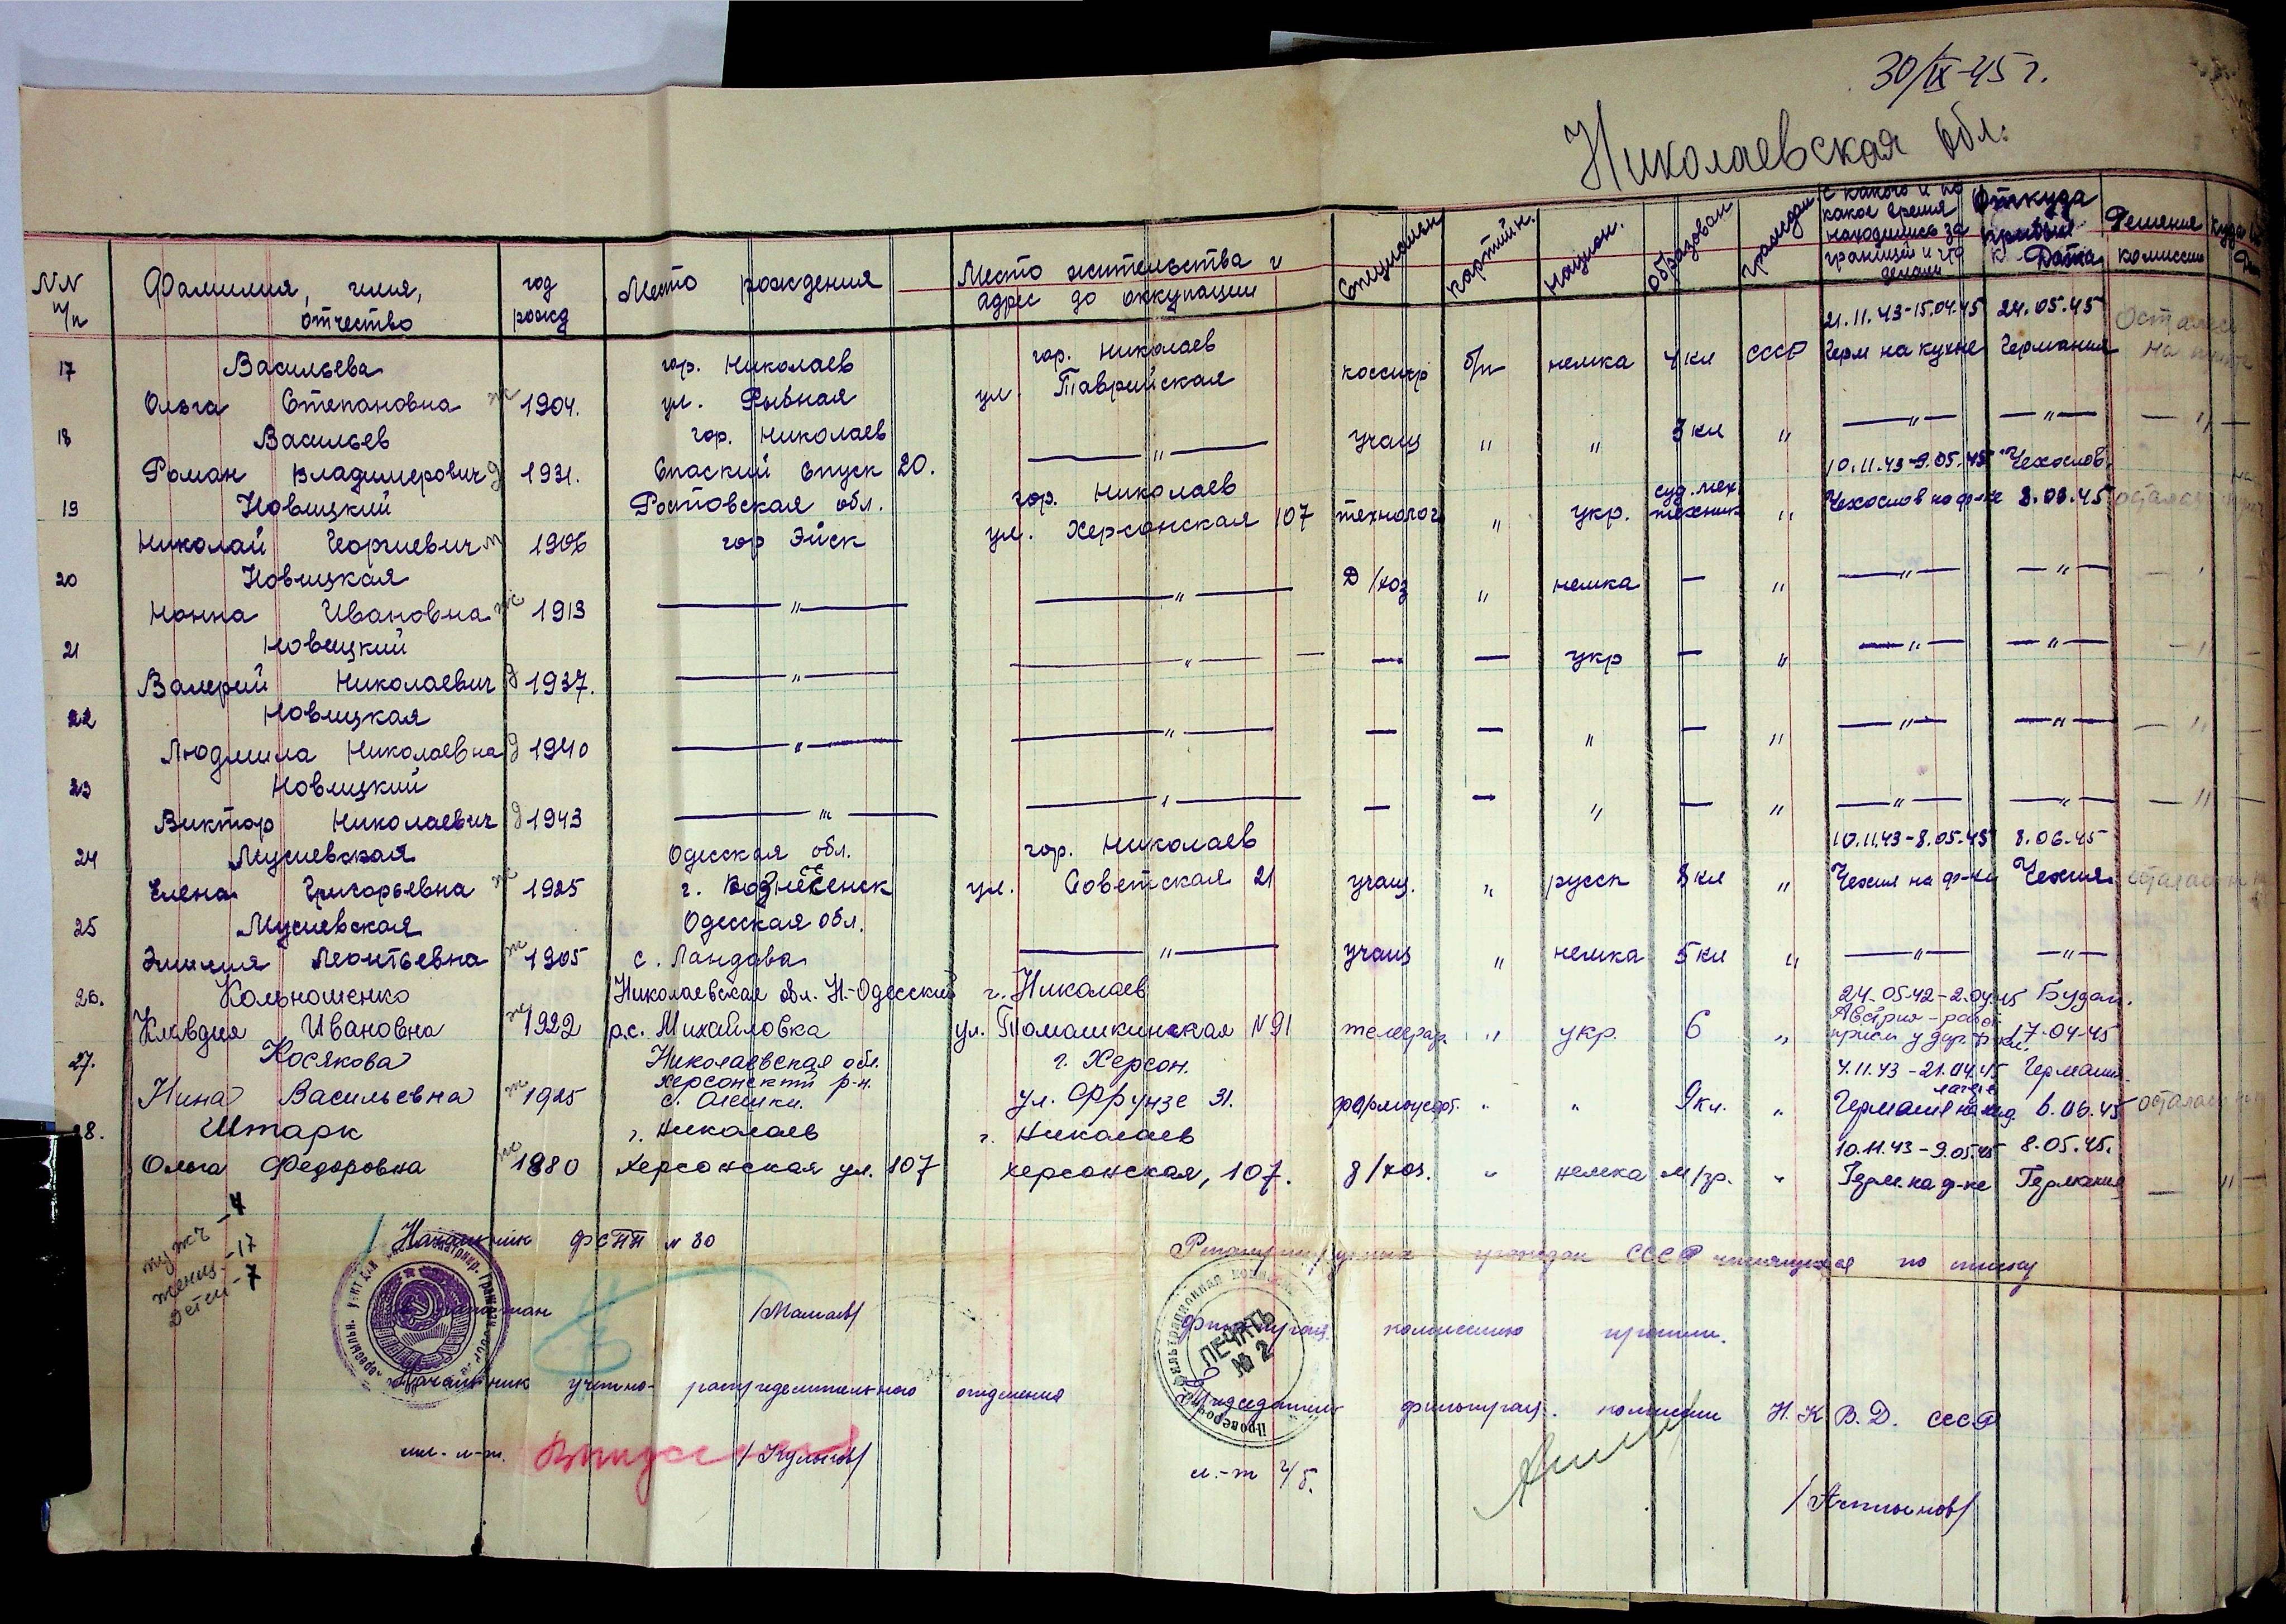 30/IX-45 г.
Николаевская обл.
NN п/п
Фамилия, имя, отчество
год рожд
Место рождения
Место жительства и адрес до оккупации
Специальн
партийн.
национ.
образован
граждан
С какого и по какое время находились за границей и что делали
Откуда прибыл и Дата
Решения комиссии
Куда
17 Васильева гор. Николаев гор. Николаев 21.11.43-15.04.45 24.05.45 Осталась
Ольга Степановна ж 1904. ул. Рыбная ул Таврийская кассир б/п немка 4 кл СССР Герм на кухне Германия на
18 Васильев гор. Николаев
Роман Владимерович д 1931. Спаский Спуск 20. — " — учащ " " 3 кл " — " — — " — — " —
19 Новицкий Ростовская обл. гор. Николаев суд. мех. 10.11.43-9.05.45 Чехослов.
Николай Георгиевич м 1906 гор Эйск ул. Херсонская 107 технолог " укр. техник " Чехослов на ф-ке 8.08.45 остался
20 Новицкая
Нонна Ивановна ж 1913 — " — — " — Д/хоз " немка — " — " — — " —
21 Новицкий
Валерий Николаевич д 1937. — " — — " — — — укр — " — " — — " —
22 Новицкая
Людмила Николаевна д 1940 — " — — " — — — " — " — " — — " — — " —
23 Новицкий
Виктор Николаевич д 1943 — " — — " — — — " — " — " — — " — — " —
24 Мусиевская Одесская обл. гор. Николаев 10.11.43-8.05.45 8.06.45
Елена Григорьевна ж 1925 г. Вознесенск ул. Советская 21 учащ. " русск 8 кл " Чехия на ф-ке Чехия осталась
25 Мусиевская Одесская обл.
Эмилия Леонтьевна ж 1905 с. Ландава — " — учащ " немка 5 кл " — " — — " —
26. Кольношенко Николаевская обл. Н.-Одесский г. Николаев 24.05.42-2.04.45 Будап.
Клавдия Ивановна ж 1922 р.с. Михайловка ул. Томашкинская N 91 телеграф. " укр. 6 " Австрия - 17-04-45
27. Косякова Николаевская обл. Херсонский р-н. г. Херсон. 4.11.43-21.04.45 Германия.
Нина Васильевна ж 1925 с. Олешки. ул. Фрунзе 31. фармацевт. " " 9 кл. " Германия лагере 6.06.45 осталась
28. Штарк г. Николаев г. Николаев 10.11.43-9.05.45 8.05.45.
Ольга Федоровна ж 1880 Херсонская ул. 107 Херсонская, 107. д/хоз. " немка м/гр. " Герм. на ф-ке Германия — " —
мужч -4
женщ. -17
Детей -7
Начальник ФСПП N 80
Репатриируемых граждан СССР числящихся по списку
/Мамаев/
фильтрац. комиссию прошли.
ПЕЧАТЬ
№ 2
Начальник учетно-распределительного отделения
Председатель фильтрац. комиссии Н.К.В.Д. СССР
мл. л-т.
л.-т г/б.